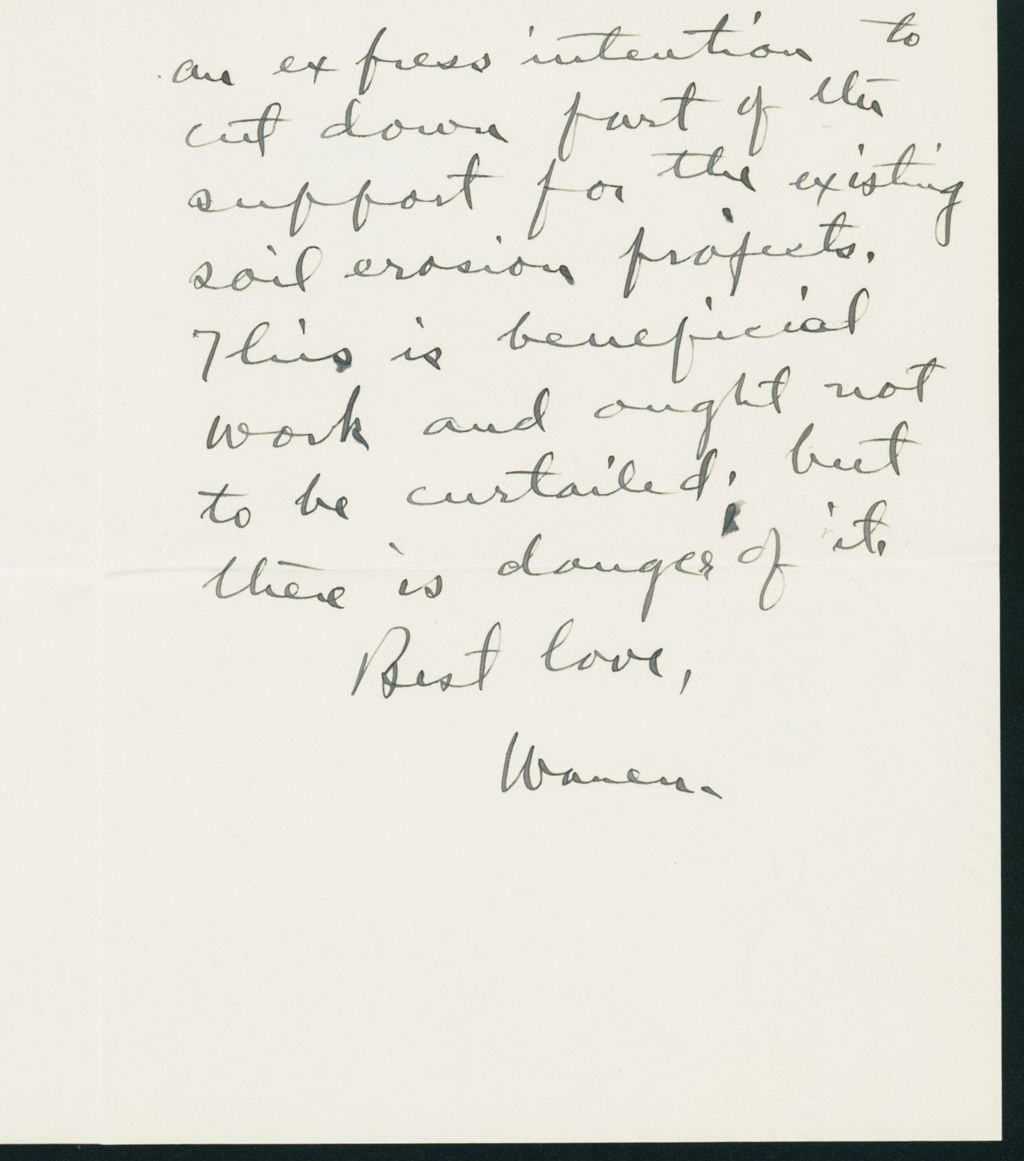 an express intention to
cut down part of the
support for the existing
soil erosion projects.
This is beneficial
work and ought not
to be curtailed, but
there is danger of it.
Best love,
Warren.